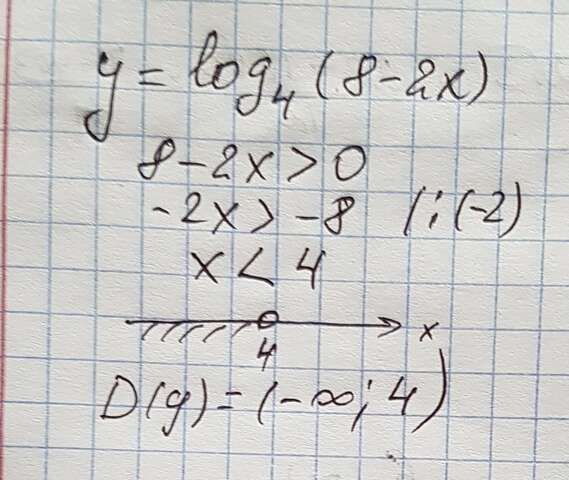 y = log₄ (8 - 2x)
8 - 2x > 0
-2x > -8 | : (-2)
x < 4
4 x
D(y) = (-∞; 4)